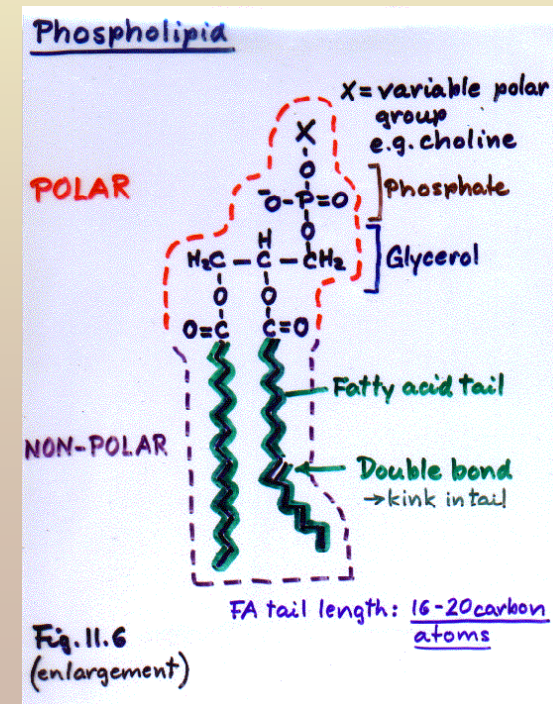 Phospholipid
X = variable polar
group
e.g. choline
X
O
⁻O-P=O
Phosphate
POLAR
O
H
H₂C — C — CH₂
Glycerol
O O
O=C C=O
Fatty acid tail
NON-POLAR
Double bond
→kink in tail
FA tail length: 16-20 carbon
atoms
Fig. 11.6
(enlargement)